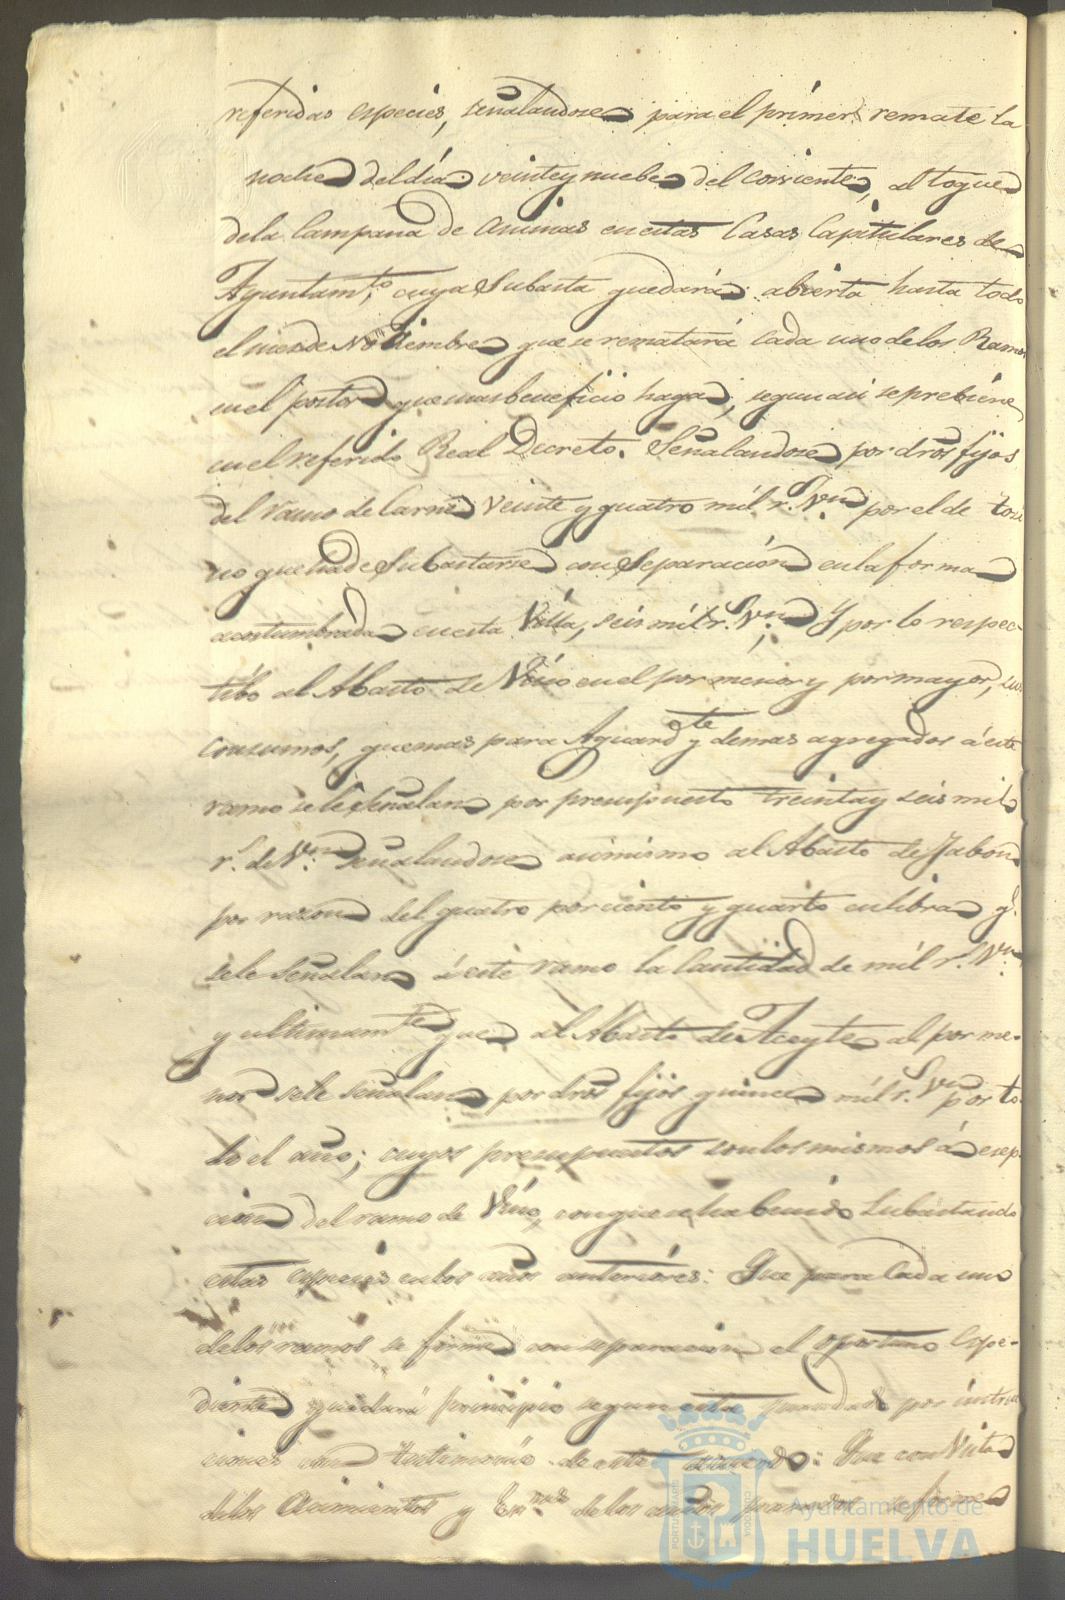 referidas especies, señalandose para el primer remate la
noche del dia veinte y nuebe del corriente, al toque
de la Campana de Animas en estas Casas Capitulares de
Ayuntamto, cuya Subasta quedará abierta hasta todo
el mes de Nobiembre que se rematará cada uno de los Ramos
en el postor que mas beneficio haga, segun asi se prebiene
en el referido Real Decreto. Señalandose por dros fijos
del ramo de Carne Veinte y quatro mil rs. Vn por el de toci
no que ha de Subastarse con Separación en la forma
acostumbrada en esta Villa, seis mil rs. Vn. Y por lo respec-
tibo al Abasto de Vino en el por menor y por mayor, sus
consumos, quemas para Aguardte y demas agregados á este
ramo se le Señalan por presupuesto treinta y seis mil
rs. de Vn. Señalandose asimismo al Abasto de Jabon
por razon del quatro por ciento y quarto en libra q.
se le Señalan á este ramo la Cantidad de mil rs. Vn.
y ultimamte que al Abasto de Aceyte al por me-
nor se le señalan por dros fijos quince mil rs. Vn por to-
do el año; cuyos presupuestos son los mismos á esep-
cion del ramo de Vino, con que se ha benido Subastando
estas especies en los años anteriores: Que para Cada uno
de los ramos se forme con separacion el oportuno Espe-
diente que dará principio segun está mandado por instruc
ciones con testimonio de este acuerdo: Que con Vista
de los Acimientos y de los años pasados se forme
Ayuntamiento de
HUELVA